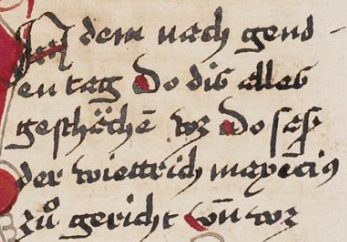 An dem nach gend-
en tag Do dis alles
geschächē wz do sas
der wiettrich maxēcius
zuͦ gericht vn̄ wz